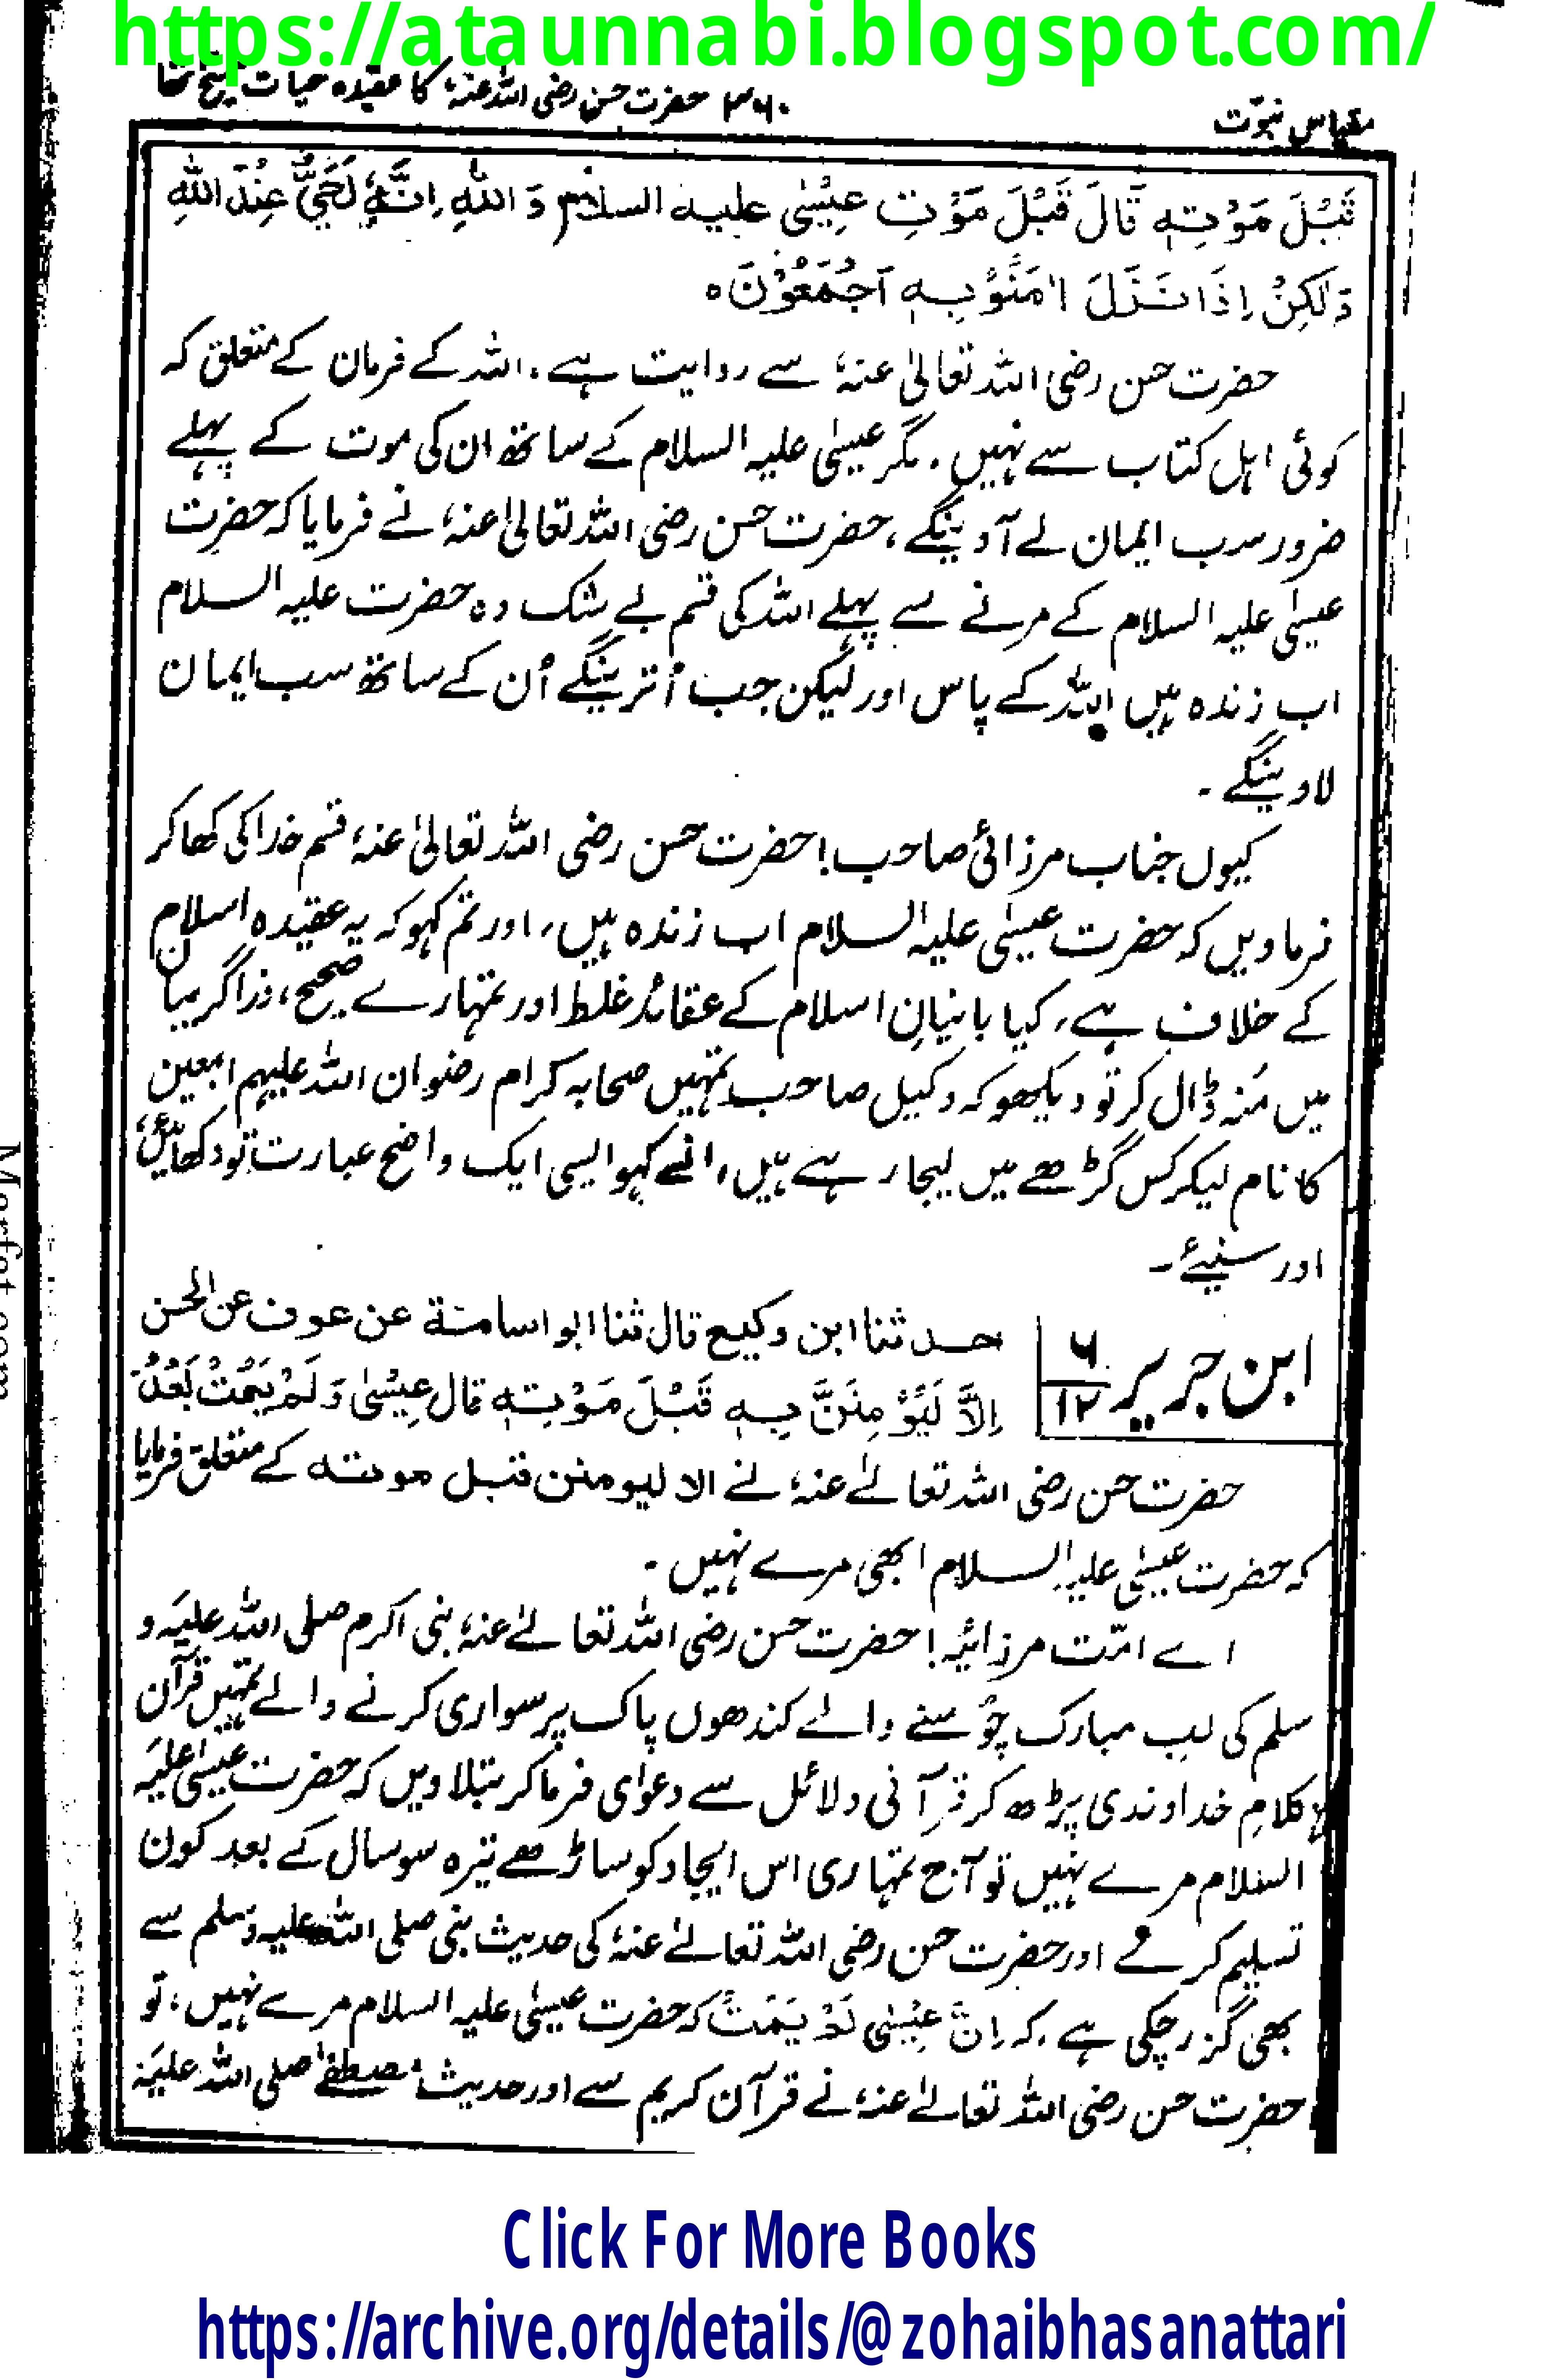 https://ataunnabi.blogspot.com/
مقیاس نبوّت ۳۶۰ حضرت حسن رضی اللہ عنہٗ کا عقیدہ حیات مسیح تھا
قَبْلَ مَوْتِهٖ قَالَ قَبْلَ مَوْتِ عِیْسٰی علیہ السلام وَ اللّٰهِ اِنَّهٗ لَحَیٌّ عِنْدَ اللّٰهِ
وَلٰکِنْ اِذَا نَزَلَ اٰمَنُوْ بِهٖ اَجْمَعُوْنَ ه
حضرت حسن رضی اللہ تعالیٰ عنہٗ سے روایت ہے . اللہ کے فرمان کے متعلق کہ
کوئی اہل کتاب سے نہیں . مگر عیسٰی علیہ السلام کے ساتھ ان کی موت کے پہلے
ضرور سب ایمان لے آوینگے ، حضرت حسن رضی اللہ تعالیٰ عنہٗ نے فرمایا کہ حضرت
عیسٰی علیہ السلام کے مرنے سے پہلے اللہ کی قسم بے شک وہ حضرت علیہ السلام
اب زندہ ہیں اللہ کے پاس اور لیکن جب اُتریںگے اُن کے ساتھ سب ایمان
لاوینگے ۔
کیوں جناب مرزائی صاحب! حضرت حسن رضی اللہ تعالیٰ عنہٗ قسم خدا کی کھا کر
فرماویں کہ حضرت عیسٰی علیہ السلام اب زندہ ہیں ، اور تم کہو کہ یہ عقیدہ اسلام
کے خلاف ہے ، کیا بانیانِ اسلام کے عقائد غلط اور تمہارے صحیح ، ذرا گریبان
میں مُنہ ڈال کر تو دیکھو کہ وکیل صاحب تمہیں صحابہ کرام رضوان اللہ علیہم اجمعین
کا نام لیکر کس گڑھے میں لیجا رہے ہیں ، انسے کہو ایسی ایک واضح عبارت تو دکھائیں ،
اور سنیئے ۔
ابن جریر ۶/۱۲ حدثنا ابن وکیع قال ثنا ابو اسامۃ عن عوف عن الحسن
اِلَّا لَیُؤْمِنَنَّ بِهٖ قَبْلَ مَوْتِهٖ قال عِیْسٰی وَ لَمْ یَمُتْ بَعْدُ
حضرت حسن رضی اللہ تعالےٰ عنہٗ نے الا لیومنن قبل موتہ کے متعلق فرمایا
کہ حضرت عیسٰی علیہ السلام ابھی مرے نہیں ۔
اے امّت مرزائیہ ! حضرت حسن رضی اللہ تعالےٰ عنہٗ نبی اکرم صلی اللہ علیہ و
سلم کی لب مبارک چُوسنے والے کندھوں پاک پر سواری کرنے والے تمہیں قرآن
کلامِ خداوندی پڑھ کر قرآنی دلائل سے دعوای فرما کر بتلاویں کہ حضرت عیسٰی علیہ
السلام مرے نہیں تو آج تمہاری اس ایجاد کو ساڑھے تیرہ سو سال کے بعد کون
تسلیم کرے اور حضرت حسن رضی اللہ تعالےٰ عنہٗ کی حدیث نبی صلی اللہ علیہ وسلم سے
بھی گزر چکی ہے . کہ اِنَّ عِیْسٰی لَمْ یَمُتْ کہ حضرت عیسٰی علیہ السلام مرے نہیں ، تو
حضرت حسن رضی اللہ تعالےٰ عنہٗ نے قرآن کریم سے اور حدیث مصطفےٰ صلی اللہ علیہ
Marfat.com
Click For More Books
https://archive.org/details/@zohaibhasanattari